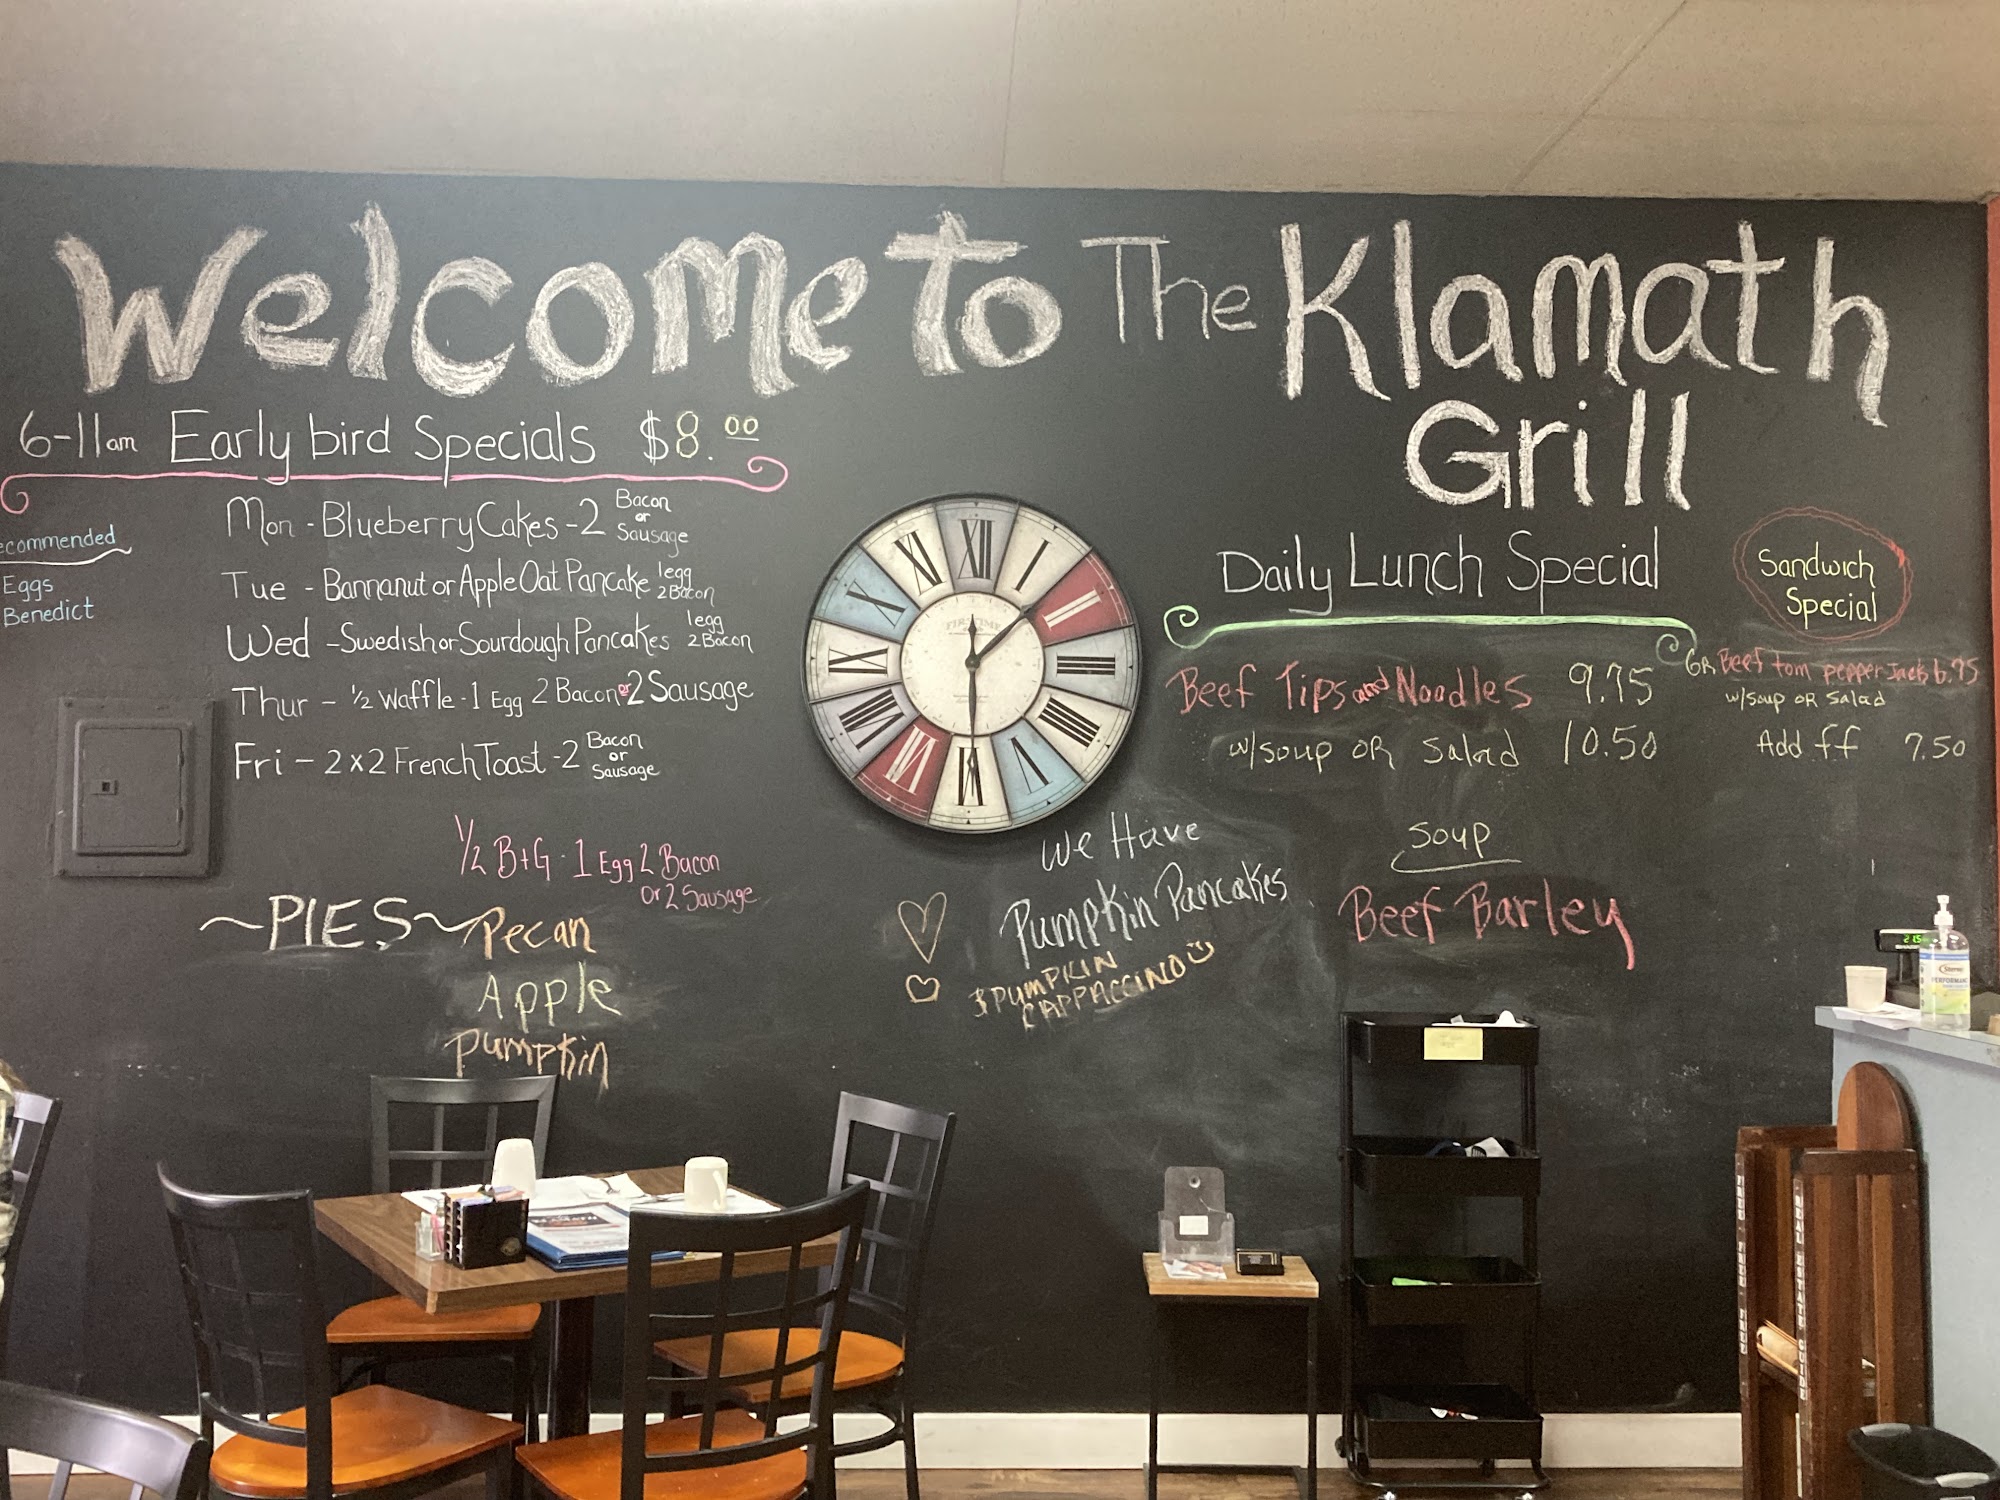 Welcome to The Klamath
Grill
6-11am Early bird Specials $8.00
ecommended
Eggs
Benedict
Mon - Blueberry Cakes - 2 Bacon or Sausage
Tue - Bannanut or Apple Oat Pancake 1egg 2Bacon
Wed - Swedish or Sourdough Pancakes 1egg 2Bacon
Thur - 1/2 Waffle - 1 Egg 2 Bacon or 2 Sausage
Fri - 2x2 French Toast - 2 Bacon or Sausage
1/2 B+G - 1 Egg 2 Bacon
or 2 Sausage
~PIES~
Pecan
Apple
Pumpkin
XII I II III IIII V VI VII VIII IX X XI
FIRSTIME
We Have
Pumpkin Pancakes
& PUMPKIN
CAPPACCINO
Daily Lunch Special
Beef Tips and Noodles 9.75
w/soup OR Salad 10.50
Soup
Beef Barley
Sandwich
Special
GR Beef tom pepper Jack 6.75
w/soup OR Salad
Add ff 7.50